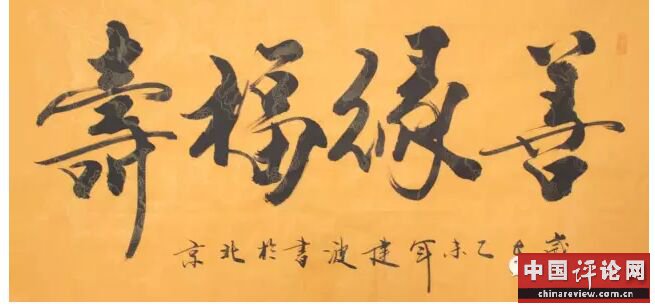 善緣福壽
歲 乙未年建波書於北京
中国评论网
chinareview.com.cn